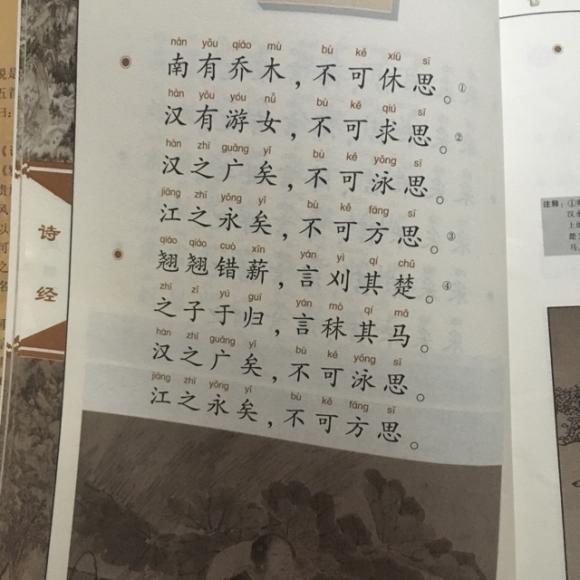 nán yǒu qiáo mù bù kě xiū sī
南有乔木，不可休思。①
hàn yǒu yóu nǚ bù kě qiú sī
汉有游女，不可求思。②
hàn zhī guǎng yǐ bù kě yǒng sī
汉之广矣，不可泳思。
jiāng zhī yǒng yǐ bù kě fāng sī
江之永矣，不可方思。③
qiáo qiáo cuò xīn yán yì qí chǔ
翘翘错薪，言刈其楚。④
zhī zǐ yú guī yán mò qí mǎ
之子于归，言秣其马。
hàn zhī guǎng yǐ bù kě yǒng sī
汉之广矣，不可泳思。
jiāng zhī yǒng yǐ bù kě fāng sī
江之永矣，不可方思。
诗经
注释：①